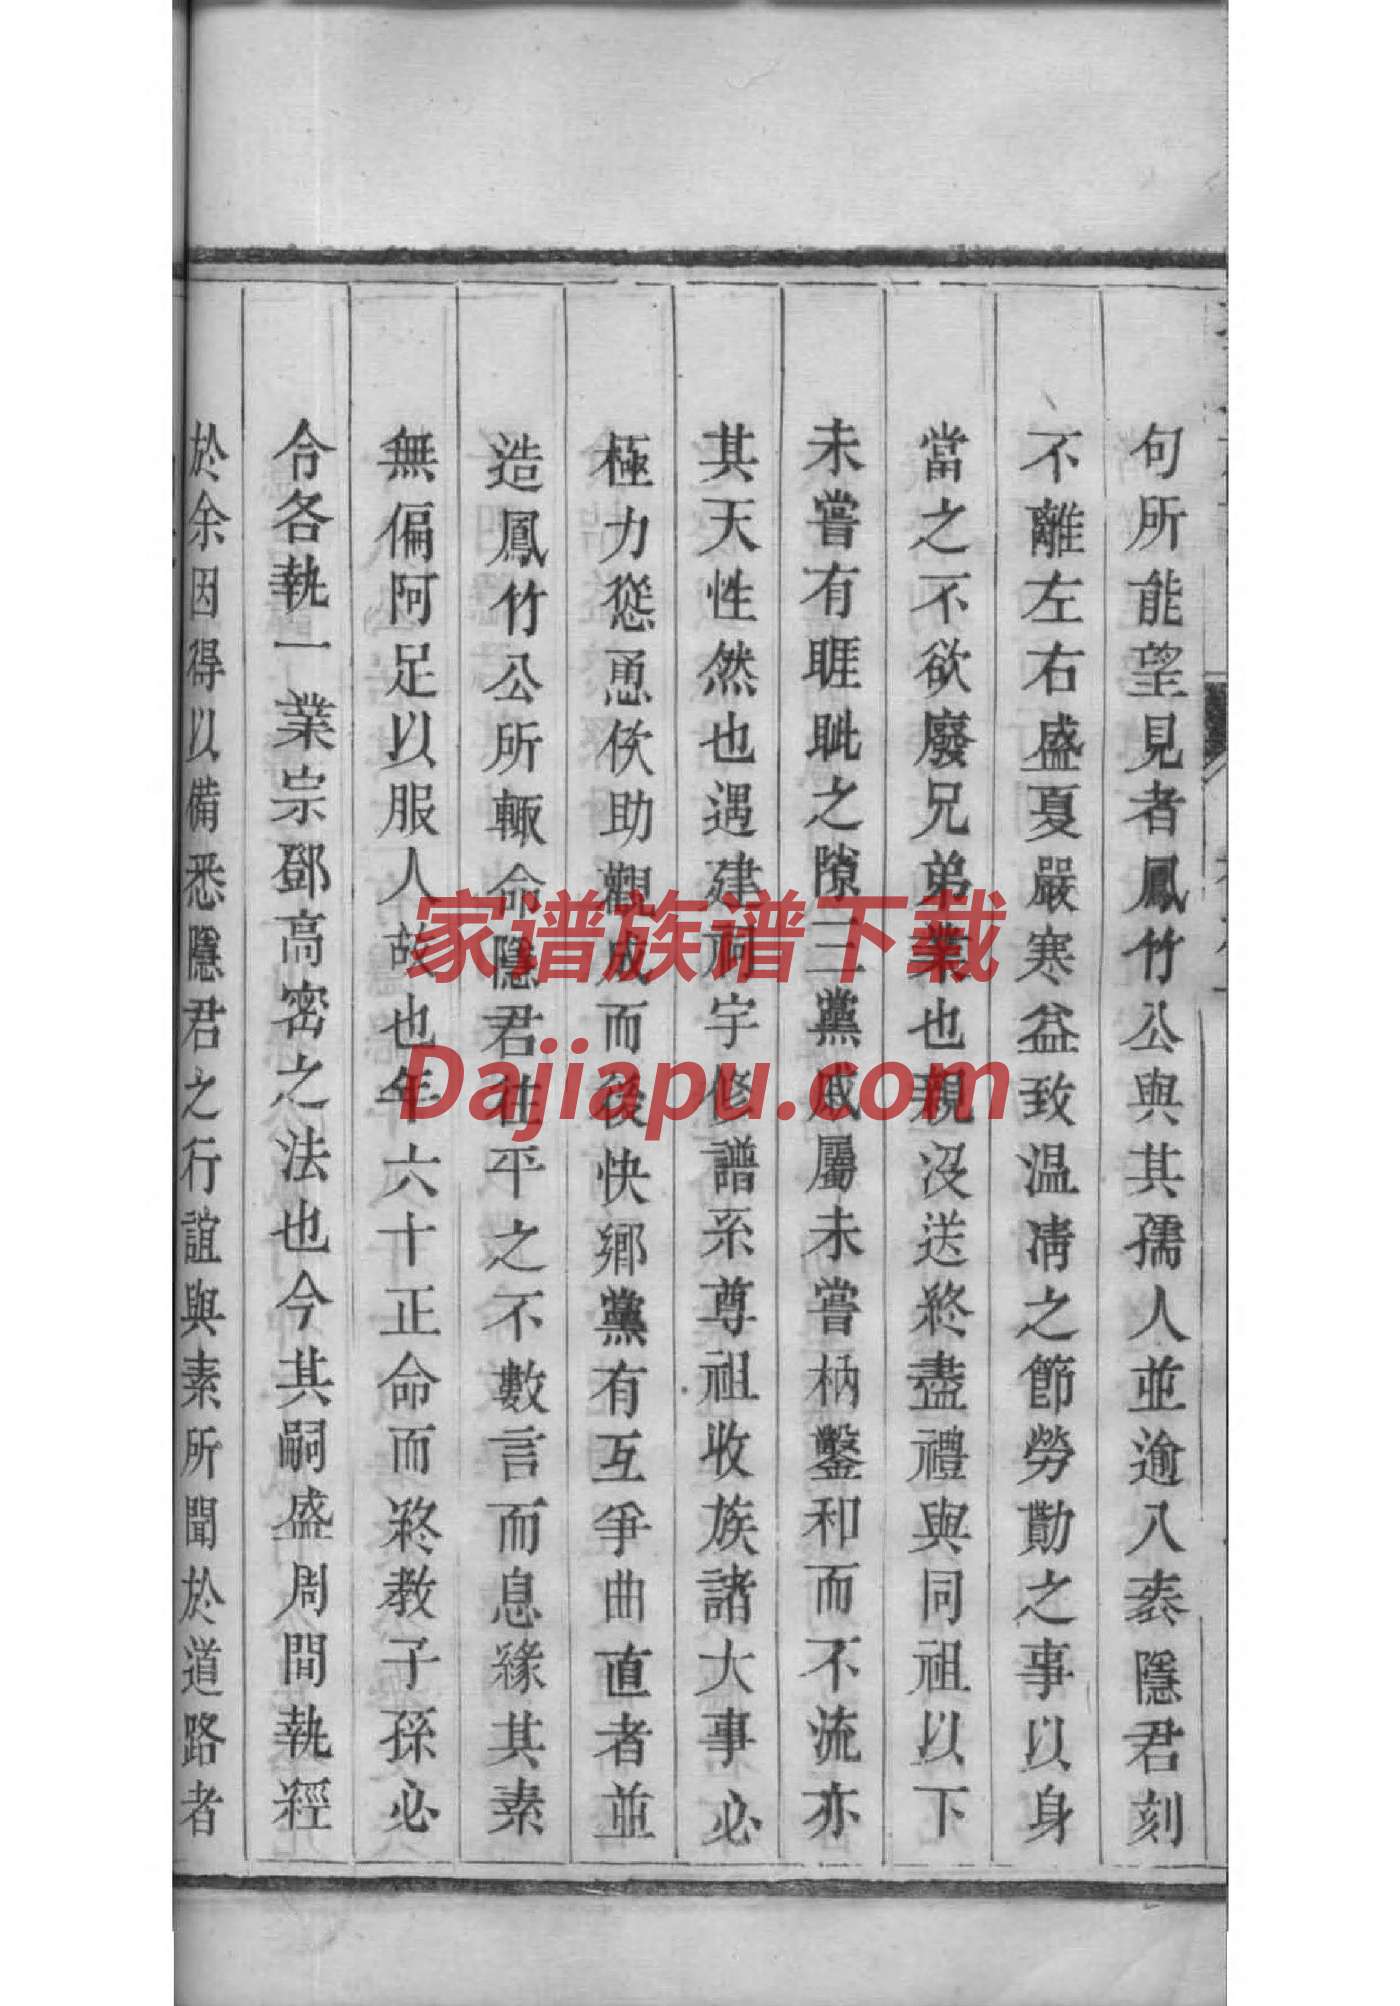 句所能望見者鳳竹公與其孺人並逾八袠隱君刻
不離左右盛夏嚴寒益致温凊之節勞勩之事以身
當之不欲廢兄弟業也親沒送終盡禮與同祖以下
未嘗有睚眦之隙三黨戚屬未嘗枘鑿和而不流亦
其天性然也遇建祠宇修譜系尊祖收族諸大事必
極力慫恿佽助觀成而後快鄉黨有互爭曲直者並
造鳳竹公所輙命隱君往平之不數言而息緣其素
無偏阿足以服人故也年六十正命而終教子孫必
令各執一業宗鄧高密之法也今其嗣盛周間執經
於余因得以備悉隱君之行誼與素所聞於道路者
家谱族谱下载
Dajiapu.com